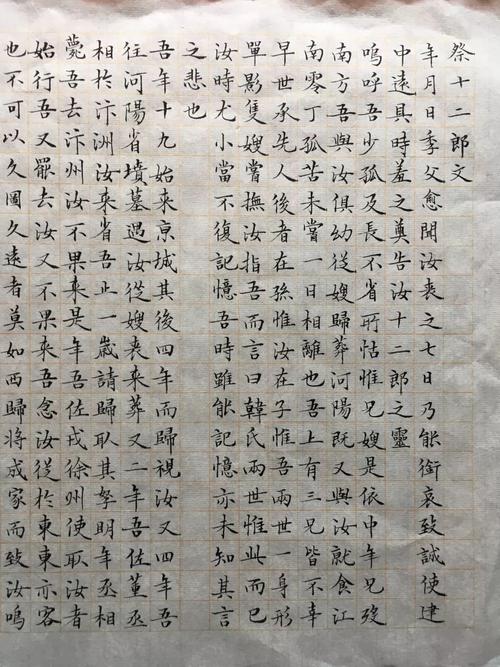 祭十二郎文
年月日季父愈聞汝喪之七日乃能銜哀致誠使建
中遠具時羞之奠告汝十二郎之靈
嗚呼吾少孤及長不省所怙惟兄嫂是依中年兄歿
南方吾與汝俱幼從嫂歸葬河陽既又與汝就食江
南零丁孤苦未嘗一日相離也吾上有三兄皆不幸
早世承先人後者在孫惟汝在子惟吾兩世一身形
單影隻嫂嘗撫汝指吾而言曰韓氏兩世惟此而已
汝時尤小當不復記憶吾時雖能記憶亦未知其言
之悲也
吾年十九始來京城其後四年而歸視汝又四年吾
往河陽省墳墓遇汝從嫂喪來葬又二年吾佐董丞
相於汴洲汝來省吾止一歲請歸取其孥明年丞相
薨吾去汴州汝不果來是年吾佐戎徐州使取汝者
始行吾又罷去汝又不果來吾念汝從於東東亦客
也不可以久圖久遠者莫如西歸將成家而致汝嗚